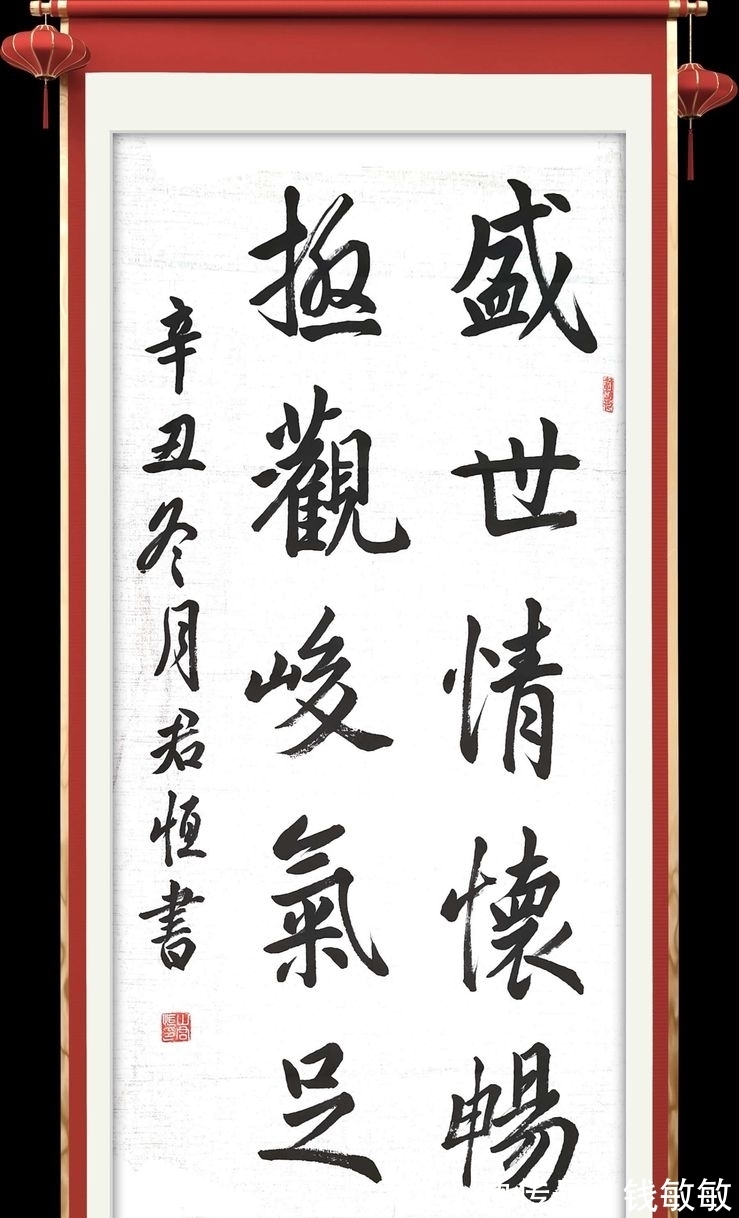 盛世情懷暢
極觀峻氣足
辛丑冬月君恒書
钱敏敏